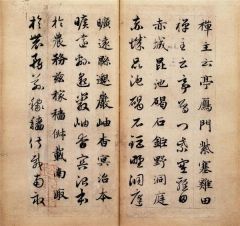 禪主云亭鴈門紫塞雞田
禪主云亭鴈門紫塞雞田
赤城昆池碣石鉅野洞庭
赤城昆池碣石鉅野洞庭
曠遠綿邈巖岫杳冥治本
曠遠綿邈巖岫杳冥治本
於農務茲稼穡俶載南畝
於農務茲稼穡俶載南畝